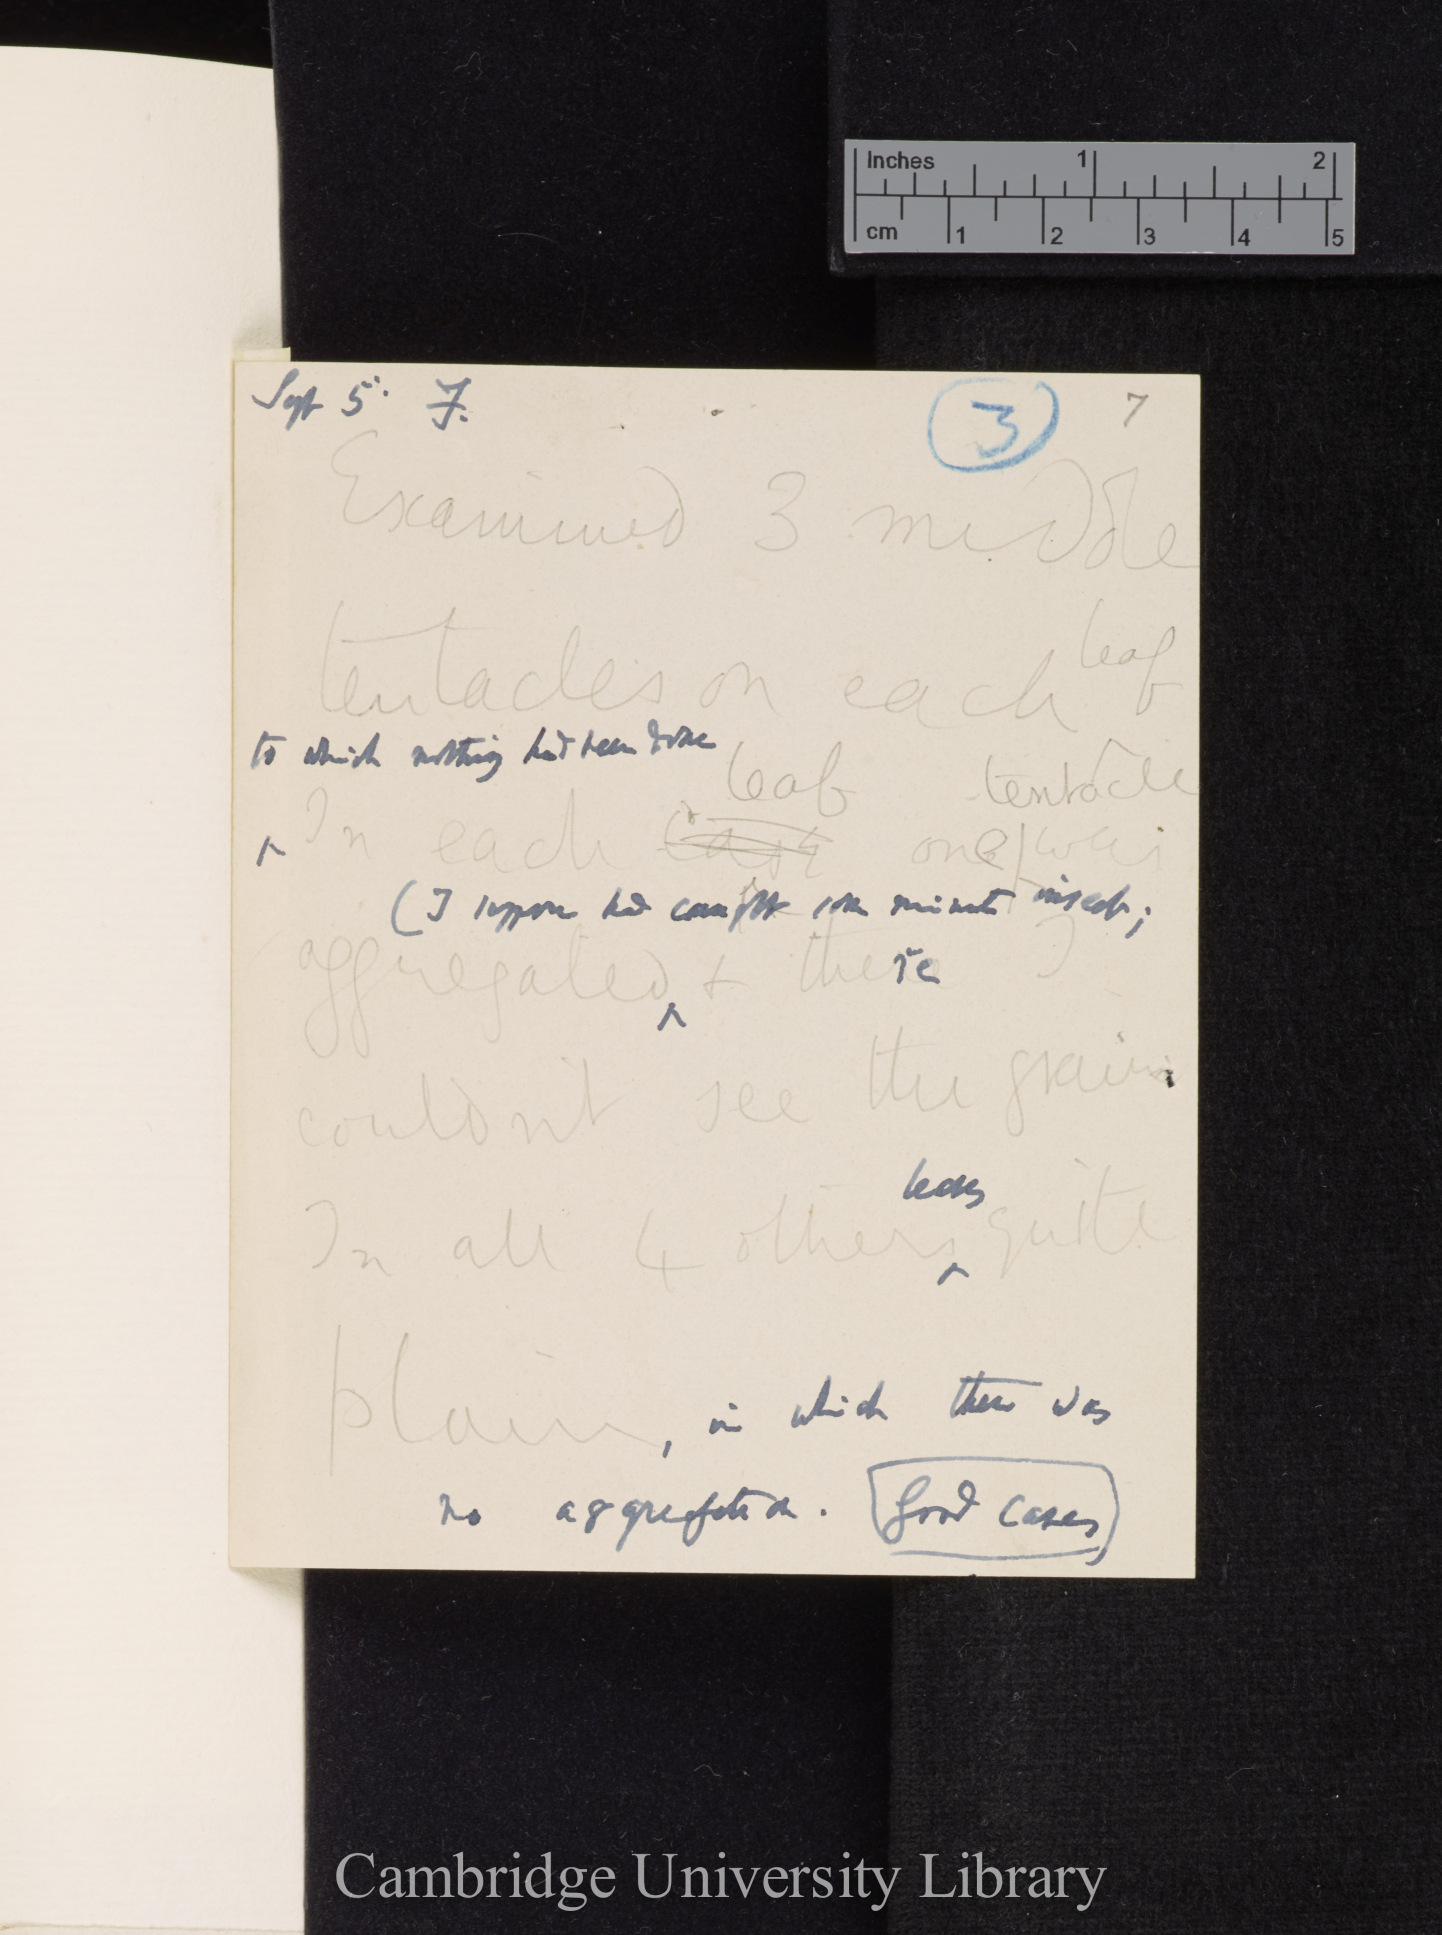 Inches 1 2
cm 1 2 3 4 5
Sept 5. F. 3 7
Examined 3 middle
leaf
tentacles on each
to which nothing had been done
leaf tentacle
^ In each case one / was
(I suppose had caught some minute insect;
aggregated ^ & these I
couldn't see the grains
leaves
In all 4 others ^ quite
plain, in which there was
no aggregation. Good Cases
Cambridge University Library